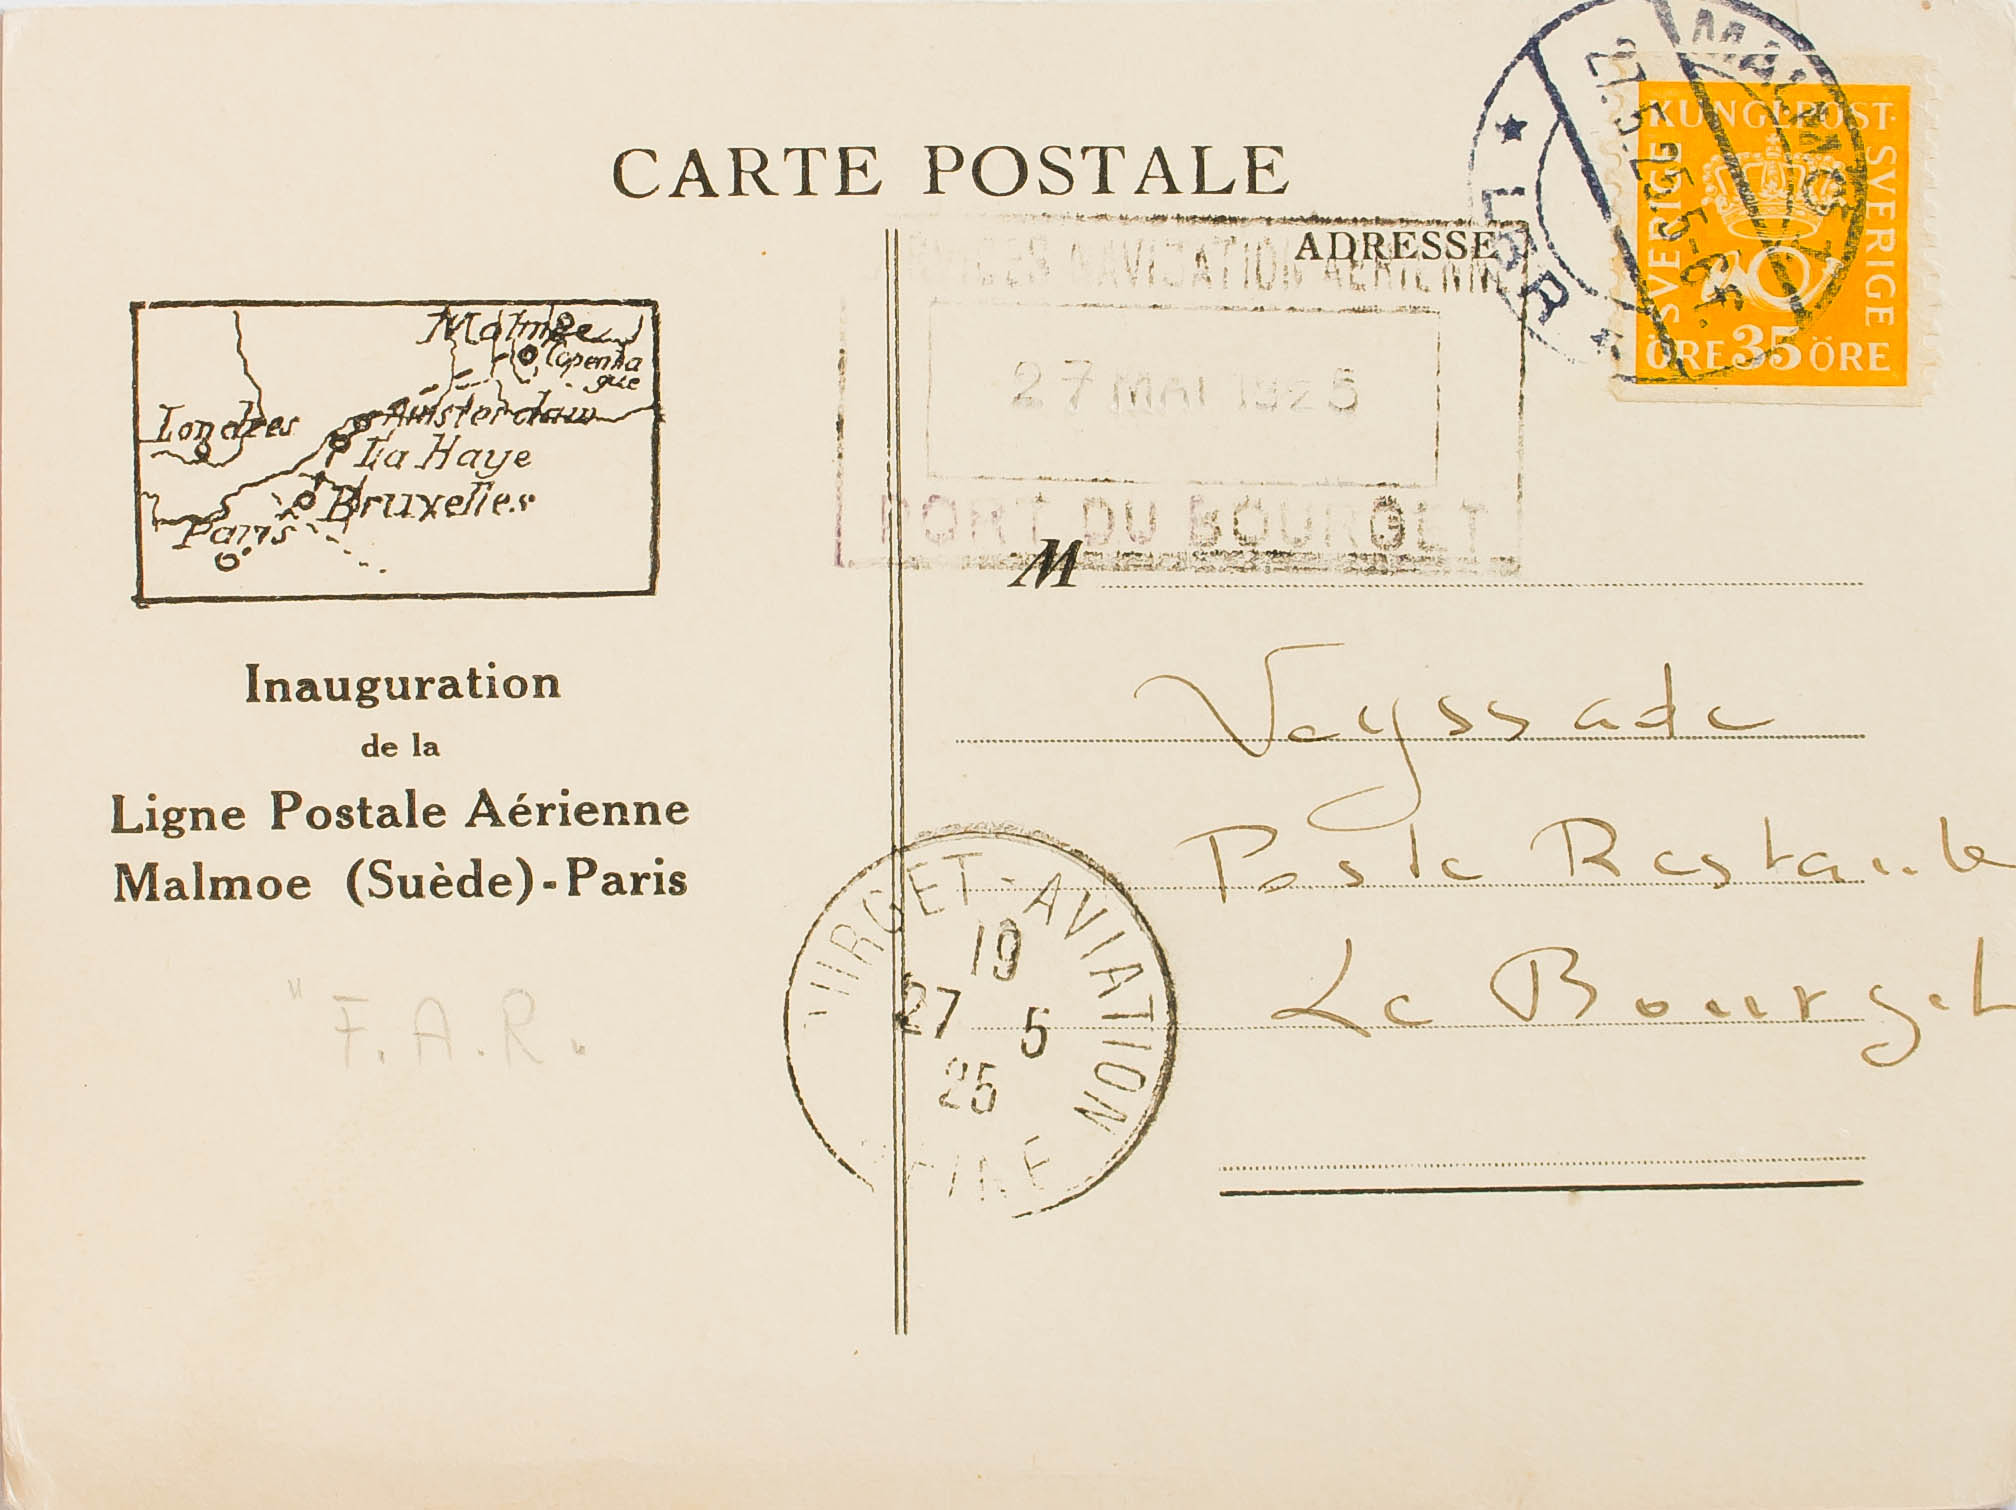 CARTE POSTALE
ADRESSE
NAVIGATION AERIENNE
27 MAI 1925
PORT DU BOURGET
MALMÖ 1
27.5.25.5-6E.
LBR
KUNGL. POST
SVERIGE
SVERIGE
ÖRE 35 ÖRE
Malmoe
Copenha
gue
Londres
Amsterdam
La Haye
Bruxelles
Paris
Inauguration
de la
Ligne Postale Aérienne
Malmoe (Suède)-Paris
"F.A.R.
M
Veyssade
Poste Restante
Le Bourget
BOURGET-AVIATION
19
27 5
25
SEINE